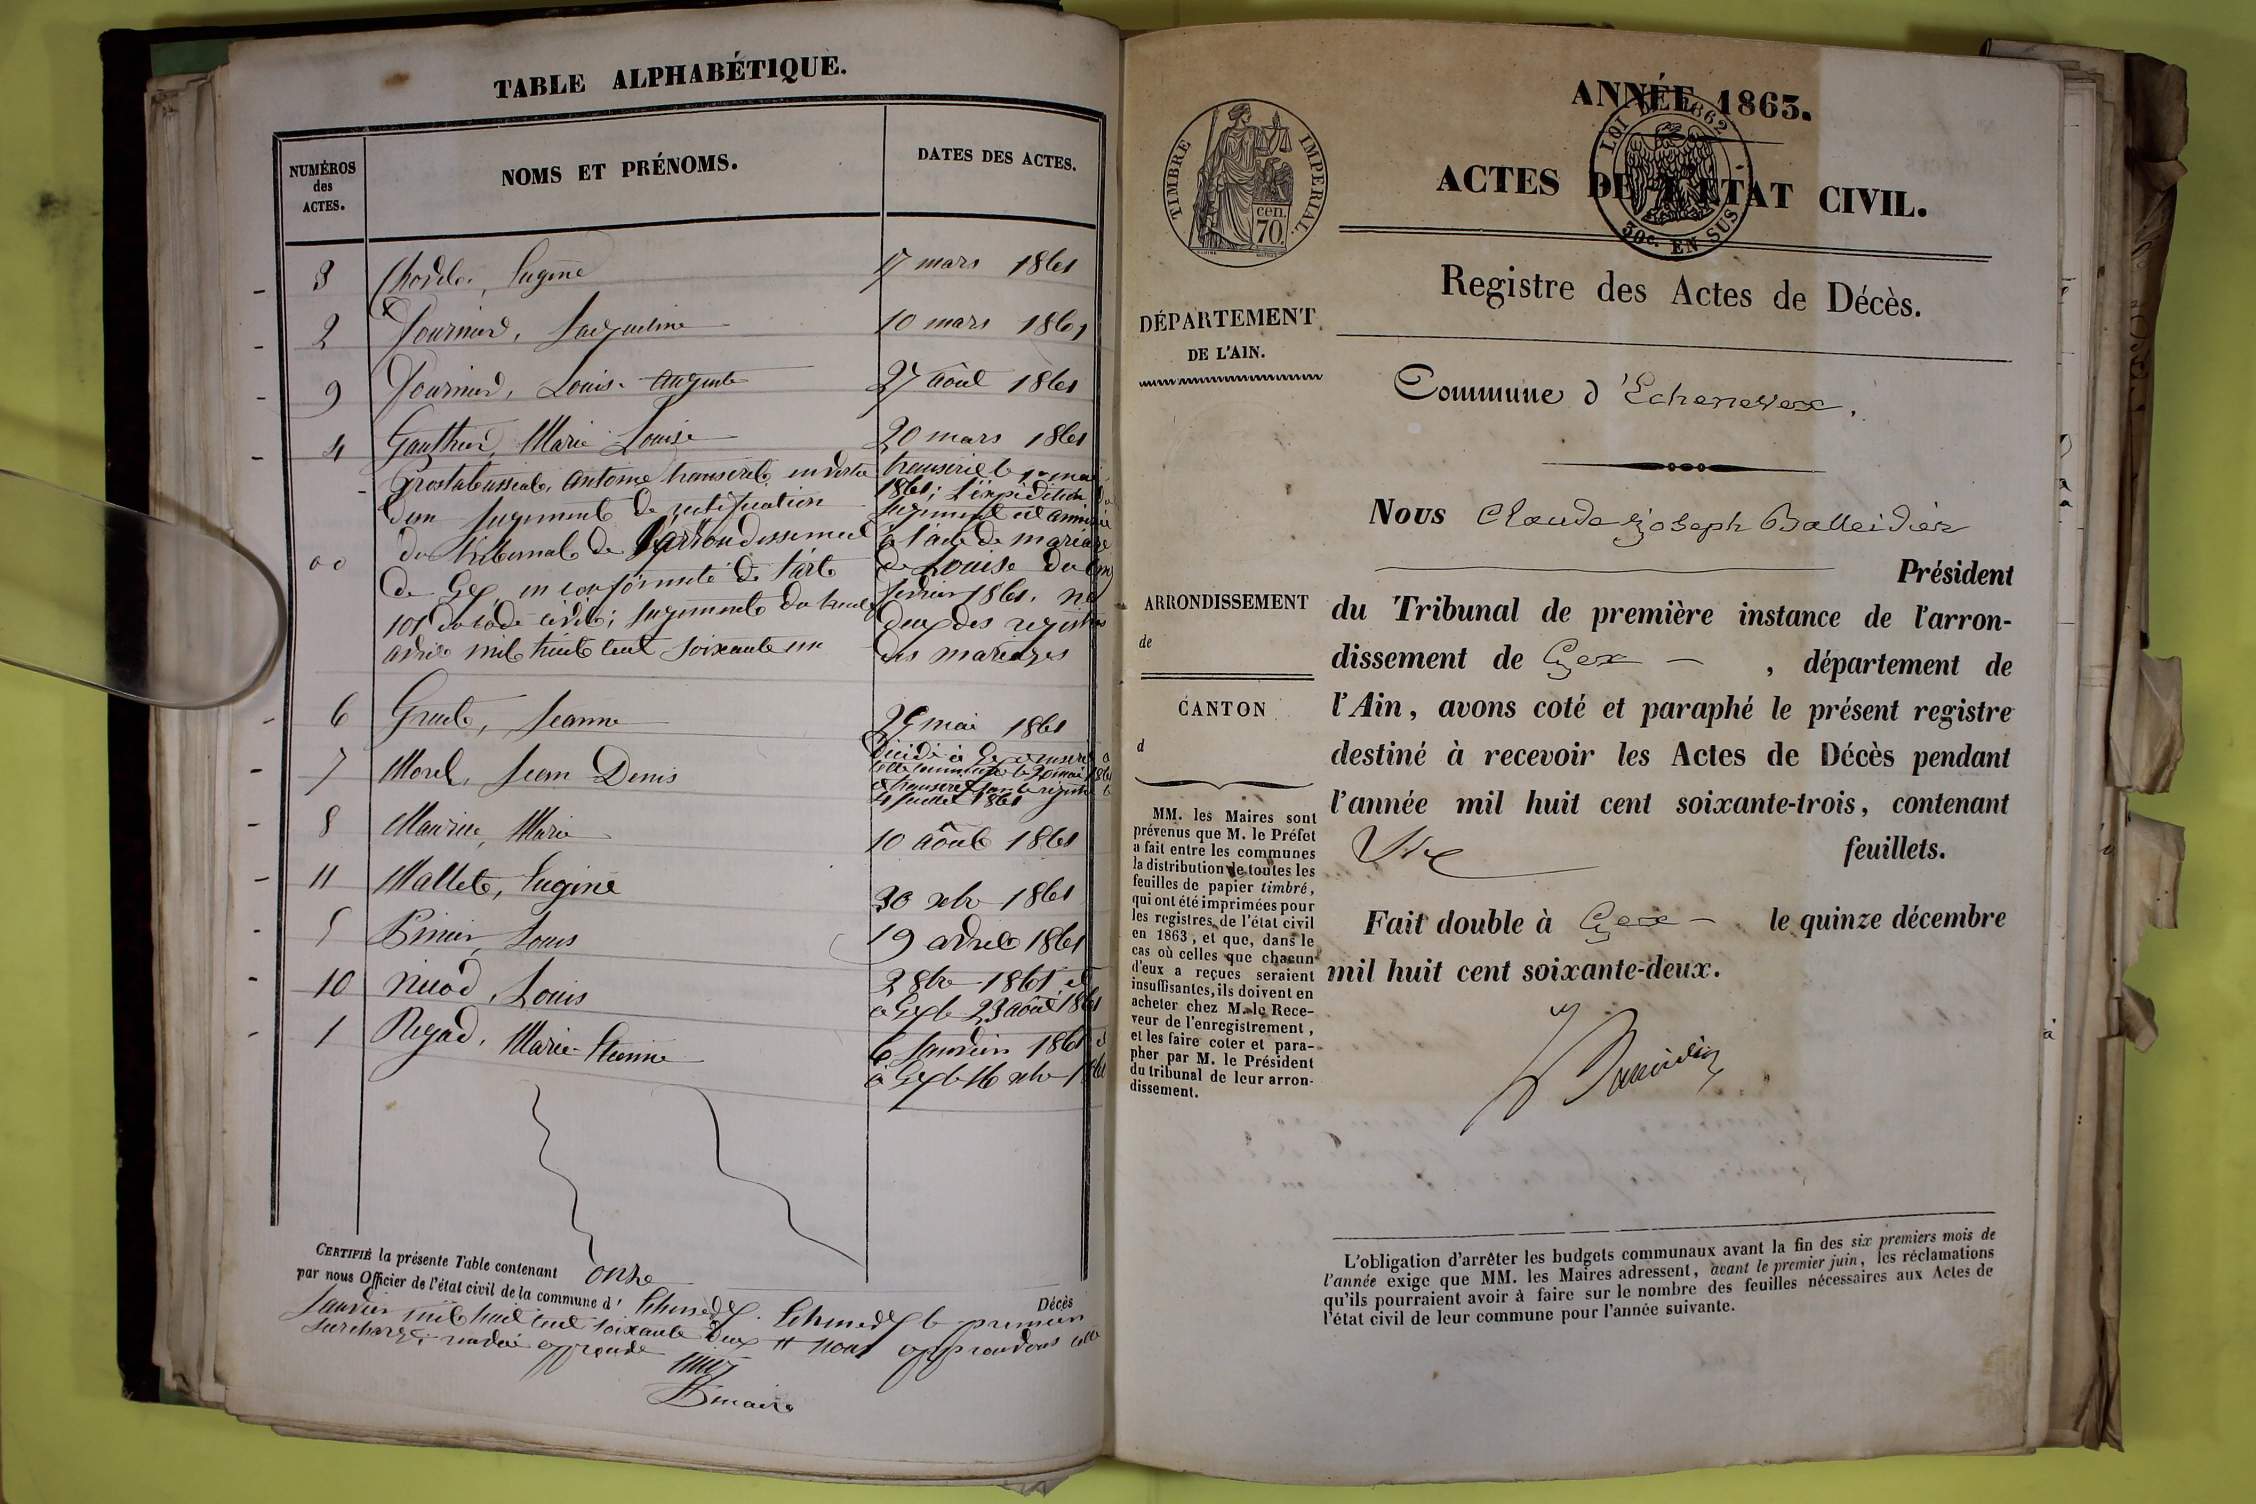 TABLE ALPHABÉTIQUE.
NUMÉROS
des
ACTES.
NOMS ET PRÉNOMS.
DATES DES ACTES.
3 Eugène 17 mars 1861
2 Fournier, Jacqueline 10 mars 1861
9 Fournier, Louis Auguste 27 août 1861
4 Gauthier, Marie Louise 20 mars 1861
Antoine transcrit en vertu transcrit le 1er mai
d'un jugement de rectification 1861; l'expédition du
du tribunal de l'arrondissement jugement est annexée
de Gex en conformité de l'art. à l'acte de mariage
101 du code civil; jugement du de Louise du
avril mil huit cent soixante un février 1861. no
deux des registres
des mariages
6 Jeanne 29 mai 1861
7 Morel, Jean Denis
4 juillet 1861
8 Maurice, Marie 10 août 1861
11 Mallet, Eugène 30 xbre 1861
5 Louis 19 avril 1861
10 Nicod, Louis 2 8bre 1861 et
à Gex le 23 août 1861
1 Regad, Marie Etienne 6 janvier 1861 et
à Gex le 16 xbre 1861
CERTIFIÉ la présente Table contenant onze Décès
par nous Officier de l'état civil de la commune d' Echenevex. Echenevex le premier
janvier mil huit cent soixante deux # nous approuvons cette
surcharge
ANNÉE 1863.
LOI DE 1862
50c. EN SUS
TIMBRE IMPÉRIAL.
cen.
70.
ACTES DE L'ÉTAT CIVIL.
Registre des Actes de Décès.
DÉPARTEMENT
DE L'AIN.
Commune d'Echenevex.
Nous Claude Joseph Balleidier
Président
du Tribunal de première instance de l'arron-
dissement de Gex, département de
l'Ain, avons coté et paraphé le présent registre
destiné à recevoir les Actes de Décès pendant
l'année mil huit cent soixante-trois, contenant
feuillets.
Fait double à Gex le quinze décembre
mil huit cent soixante-deux.
ARRONDISSEMENT
de
CANTON
d
MM. les Maires sont
prévenus que M. le Préfet
a fait entre les communes
la distribution de toutes les
feuilles de papier timbré,
qui ont été imprimées pour
les registres de l'état civil
en 1863, et que, dans le
cas où celles que chacun
d'eux a reçues seraient
insuffisantes, ils doivent en
acheter chez M. le Rece-
veur de l'enregistrement,
et les faire coter et para-
pher par M. le Président
du tribunal de leur arron-
dissement.
L'obligation d'arrêter les budgets communaux avant la fin des six premiers mois de
l'année exige que MM. les Maires adressent, avant le premier juin, les réclamations
qu'ils pourraient avoir à faire sur le nombre des feuilles nécessaires aux Actes de
l'état civil de leur commune pour l'année suivante.